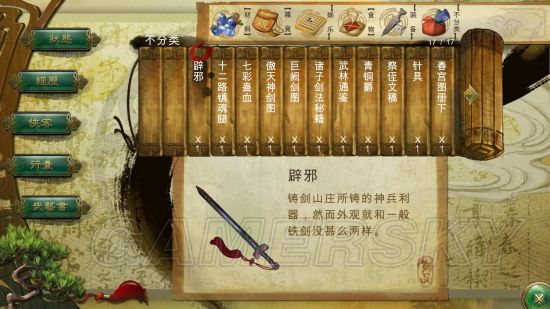 狀態
經歷
俠客
行囊
武藝書
不分类
【材料】
【雜貨】
【娱乐】
【食物】
【装备】
【不分类】
17 / 17
辟邪 X 1
十二路镇魂腿 X 1
七彩蛊血 X 1
傲天神剑图 X 1
巨阙剑图 X 1
诸子剑法秘籍 X 1
武林通鉴 X 1
青铜爵 X 1
祭侄文稿 X 1
针具 X 1
春宫图册下 X 1
辟邪
铸剑山庄所铸的神兵利
器，然而外观就和一般
铁剑没甚么两样。
物品
GAMERSKY